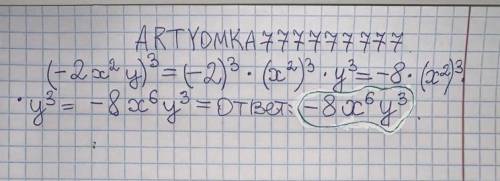 ARTYOMKA777777777
(-2x²y)³=(-2)³·(x²)³·y³=-8·(x²)³·
·y³= -8x⁶y³=Ответ: -8x⁶y³.